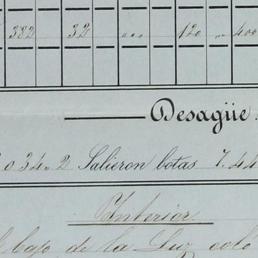 382 32 ... 120 " 400
Desagüe
034.2 Salieron botas 7.44
Interior
bajo de la Luz colo